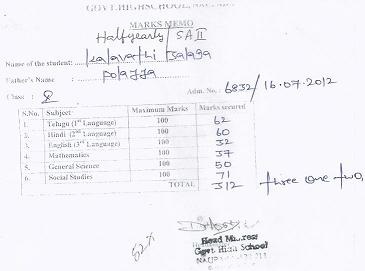 GOVT.HIGH SCHOOL,
MARKS MEMO
Halfyearly/SA II
Name of the student: kalavathi Balaga
Father's Name : polayya
Class : 8 Adm. No. : 6832/16.07.2012
S.No. Subject Maximum Marks Marks secured
1. Telugu (1st Language) 100 62
2. Hindi (2nd Language) 100 60
3. English (3rd Language) 100 32
4. Mathematics 100 37
5. General Science 100 50
6. Social Studies 100 71
TOTAL 312 three one two
52%
Head Mistress
Govt High School